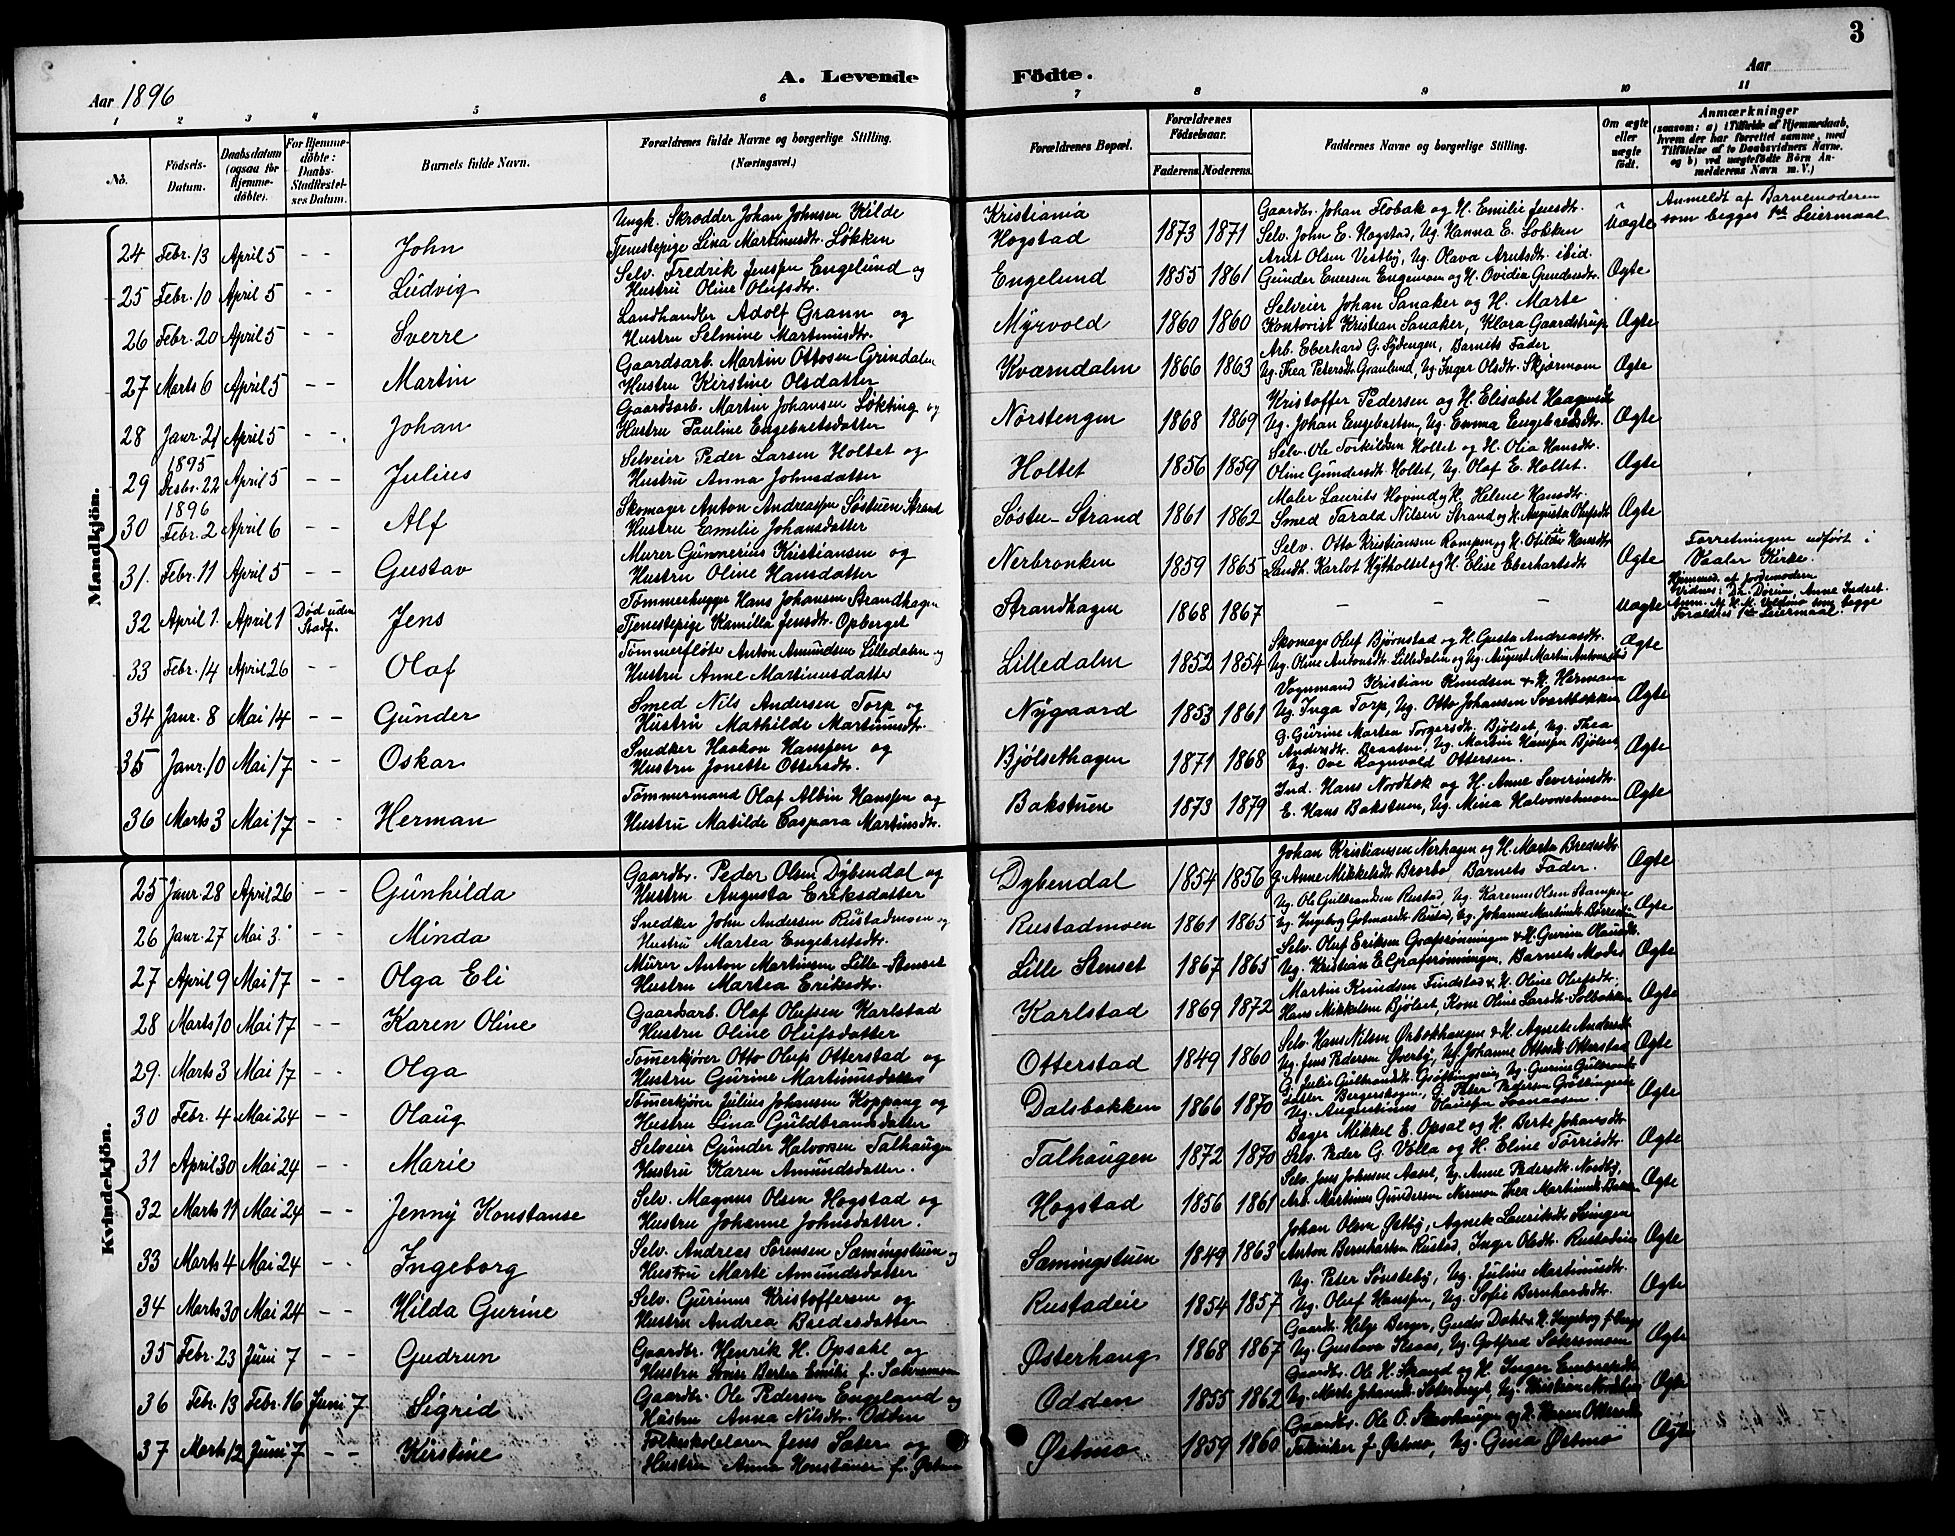 3
A. Levende Födte.
Aar 1896
Aar
1 2 3 4 5 6 7 8 9 10 11
No.
Födsels-Datum.
Daabsdatum (ogsaa for Hjemmedöbte).
For Hjemmedöbte: Daabs-Stadfæstelses Datum.
Barnets fulde Navn.
Forældrenes fulde Navne og borgerlige Stilling. (Næringsvei.)
Forældrenes Bopæl.
Forældrenes Födselsaar.
Faderens. Moderens.
Faddernes Navne og borgerlige Stilling.
Om ægte eller uægte födt.
Anmærkninger
(saasom: a) i Tilfælde af Hjemmedaab, hvem der har forrettet samme, med Tilföielse af to Daabsvidners Navne, og b) ved uægtefödte Börn Anmelderens Navn m. V.)
Mandkjön.
24 Febr. 13 April 5 - - John
Ungk. Skrædder Johan Johnsen Kilde
Tjenestepige Lina Martinusdtr. Løkken
Kristiania
Hogstad 1873 1871
Gaardbr. Johan Flobak og H. Emilie Jensdtr.
Selv. John E. Hogstad, Ug. Hanna E. Løkken
Uægte
Anmeldt af Barnemoderen
som begges 1ste Leiermaal
25 Febr. 10 April 5 - - Ludvig
Selv. Fredrik Jenssen Engelund og
Hustru Oline Olufsdtr.
Engelund 1855 1861
Arnt Olsen Vestby, Ug. Olava Arntsdtr. ibid.
Gunder Enersen Engemoen og H. Ovidia Gundersdtr.
Ægte
26 Febr. 20 April 5 - - Sverre
Landhandler Adolf Grann og
Hustru Selmine Martinusdtr.
Myrvold 1860 1860
Selveier Johan Sanaker og H. Marte
Kontorist Kristian Sanaker, Klara Gaardstrup
Ægte
27 Marts 6 April 5 - - Martin
Gaardsarb. Martin Ottosen Grindalen
Hustru Kirstine Olsdatter
Kværndalen 1866 1863
Arb. Eberhard G. Sydengen, Barnets Fader
Ug. Thea Petersdtr. Granlund, Ug. Inger Olsdtr. Skjærmoen
Ægte
28 Janr. 21 April 5 - - Johan
Gaardsarb. Martin Johansen Løkting og
Hustru Pauline Engebretsdatter
Nørstengen 1868 1869
Kristoffer Pedersen og H. Elisabet Haagensdtr.
Ug. Johan Engebretsen, Ug. Emma Engebretsdtr.
Ægte
1895
29 Desbr. 22 April 5 - - Julius
Selveier Peder Larsen Holtet og
Hustru Anna Johnsdatter
Holtet 1856 1859
Selv. Ole Torkildsen Holtet og H. Olia Hansdtr.
Oline Gundersdtr. Holtet, Ug. Olaf E. Holtet.
Ægte
1896
30 Febr. 2 April 6 - - Alf
Skomager Anton Andreassen Søstuen Strand
Hustru Emilie Johansdatter
Søstu-Strand 1861 1862
Maler Laurits Hovind og H. Helene Hansdtr.
Smed Tarald Nilsen Strand og H. Augusta Olufsdtr.
Ægte
31. Febr. 11 April 5 - - Gustav
Murer Gunnerius Kristiansen og
Hustru Oline Hansdatter
Nerbronken 1859 1865
Selv. Otto Kristiansen Rompen og H. Otilie Hansdtr.
Landh. Karlot Nytholtet og H. Elise Eberhartsdtr.
Ægte
Forretningen udført i
Vaaler Kirke.
32 April 1. April 1 Død uden Stadf. Jens
Tømmerhugger Hans Johansen Strandhagen
Tjenestepige Kamilla Jensdtr. Opberget
Strandhagen 1868 1867 - - -
Uægte
Hjemmed. af Jordemoderen
33 Febr. 14 April 26 - - Olaf
Tømmerfløter Anton Amundsen Lilledalen og
Hustru Anne Martinusdatter
Lilledalen 1852 1854
Skomager Oluf Bjørnstad og H. Gusta Andreasdtr.
Ug. Oline Antonsdtr. Lilledalen og Ug. August Martin Antonsen ibid
Ægte
34 Janr. 8 Mai 14 - - Gunder
Smed Nils Andersen Torp og
Hustru Mathilde Martinusdtr.
Nygaard 1853 1861
Vognmand Kristian Knudsen & H. Hermana
Ug. Inga Torp, Ug. Otto Johansen Svartbekken
Ægte
35 Janr. 10 Mai 17 - - Oskar
Snedker Haakon Hanssen og
Hustru Jonette Ottersdtr.
Bjølsethagen 1871 1868
G. Gurine Martea Torgersdtr. Bjølset, Ug. Thea
Andersdtr. Braaten, Ug. Martin Hanssen Bjølset,
Ug. Ove Ragnvald Ottersen.
Ægte
36 Marts 3 Mai 17 - - Herman
Tømmermand Olaf Albin Hanssen og
Hustru Matilde Caspara Martinsdtr.
Bakstuen 1873 1879
Ind. Hans Nordhok og H. Anne Severinsdtr.
E. Hans Bakstuen, Ug. Mina Halvorsetmoen
Ægte
Kvindekjön.
25 Janr. 28 April 26 - - Gunhilda
Gaardbr. Peder Olsen Dybendal og
Hustru Augusta Eriksdatter
Dybendal 1854 1856
Johan Kristiansen Nerhagen og H. Marta Bredesdtr.
G. Anne Mikkelsdtr. Brorbø Barnets Fader.
Ægte
26 Janr. 27 Mai 3. - - Minda
Snedker John Andersen Rustadmoen og
Hustru Martea Engebretsdtr.
Rustadmoen 1861 1865
Ug. Ole Gulbrandsen Rustad, Ug. Karenus Olsen Stampen
Ægte
27 April 9 Mai 17 - - Olga Eli
Murer Anton Martinsen Lille-Stenset
Hustru Martea Eriksdtr.
Lille Stenset 1867 1865
Selv. Oluf Eriksen Grafsrønningen & H. Gurine Olausdtr.
Ug. Kristian E. Grafsrønningen, Barnets Moder
Ægte
28 Marts 10 Mai 17 - - Karen Oline
Gaardsarb. Olaf Olufsen Karlstad
Hustru Oline Olufsdatter
Karlstad 1869 1872
Martin Knudsen Findstad & H. Oline Olufsdtr.
Hans Mikkelsen Bjølset, Kone Oline Larsdtr. Solbakken
Ægte
29. Marts 3 Mai 17 - - Olga
Tømerkjører Otto Olufs. Otterstad og
Hustru Gurine Martinusdatter
Otterstad 1849 1860
Selv. Hans Nilsen Ørbekhaugen & H. Agnete Andersdtr.
Ug. Jens Pedersen Øverby, Ug. Johanne Ottersdtr. Otterstad
Ægte
30 Febr. 4 Mai 24 - - Olaug
Tømerkjører Julius Johansen Koppang og
Hustru Lina Guldbrandsdatter
Dalsbakken 1866 1870
Ægte
31 April 30 Mai 24 - - Marie
Selveier Gunder Halvorsen Talhaugen
Hustru Karen Amundsdatter.
Talhaugen 1872 1870
Bager Mikkel E. Opsal og H. Berte Johansdtr.
Selv. Peder G. Volla og H. Eline Torrisdtr.
Ægte
32 Marts 11 Mai 24 - - Jenny Konstanse
Selv. Magnus Olsen Hogstad og
Hustru Johanne Johnsdatter.
Hogstad 1856 1861
Selv. Jens Johnsen Aaset, Ug. Anne Pedersdtr. Nordby,
Ægte
33 Marts 4 Mai 24 - - Ingeborg
Selv. Andreas Sørensen Sæmingstuen og
Hustru Marte Amundsdatter
Sæmingstuen 1849 1863
Johan Olsen Østby, Agnete Lauritsdtr. Svingen
Anton Bernhartsen Rustad, Inger Olsdtr. Rustadeie
Ægte
34 Marts 30 Mai 24 - - Hilda Gurine
Selv. Gurinus Kristoffersen og
Hustru Andrea Bredesdatter
Rustadeie 1854 1857
Ug. Peter Sønsteby, Ug. Juline Martinusdtr.
Ug. Oluf Hanssen, Ug. Sofie Bernhardsdtr.
Ægte
35 Febr. 23 Juni 7 - - Gudrun
Gaardbr. Henrik H. Opsahl og
Østerhaug 1868 1867
Ægte
36 Febr. 13 Febr. 16 Juni 7 Sigrid
Gaardbr. Ole Pedersen Engeland og
Hustru Anna Nilsdtr. Odden
Odden 1855 1862
Gaardbr. Ole H. Strand og H. Inger Embretsdtr.
Ægte
37 Marts 12 Juni 7 - - Kirstine
Folkeskolelærer Jens Sater og
Hustru Anna Konstanse f. Østmo
Østmo 1859 1860
Tekniker J. Østmo, Ug. Gina Østmo
Ægte